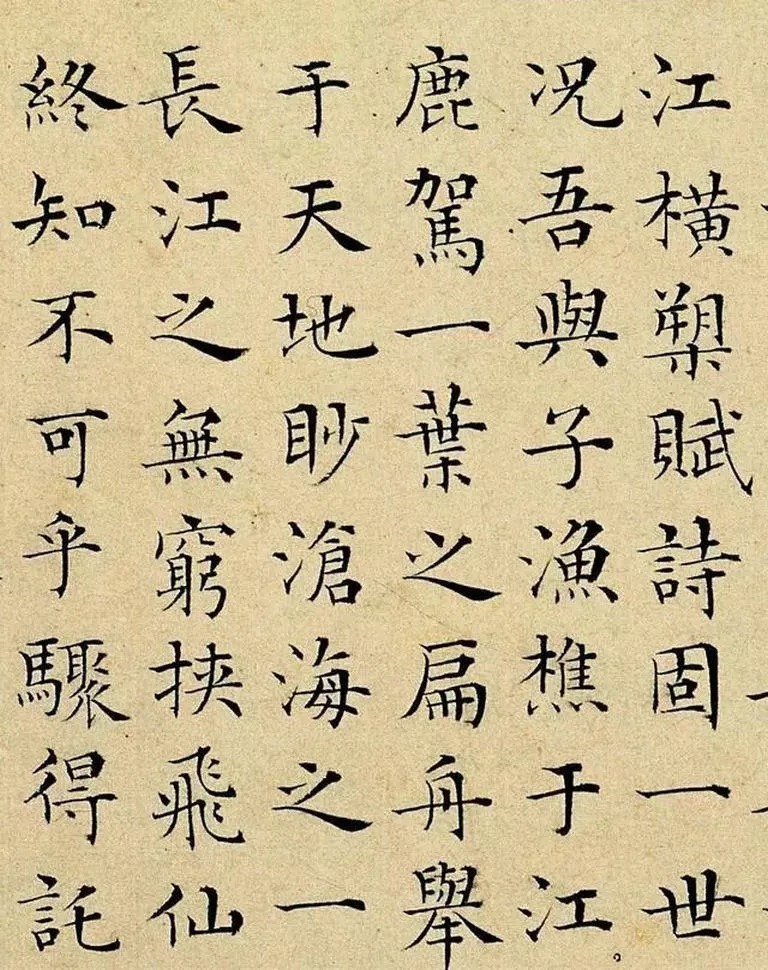 江橫槊賦詩固一世
況吾與子漁樵于江
鹿駕一葉之扁舟舉
于天地眇滄海之一
長江之無窮挾飛仙
終知不可乎驟得託